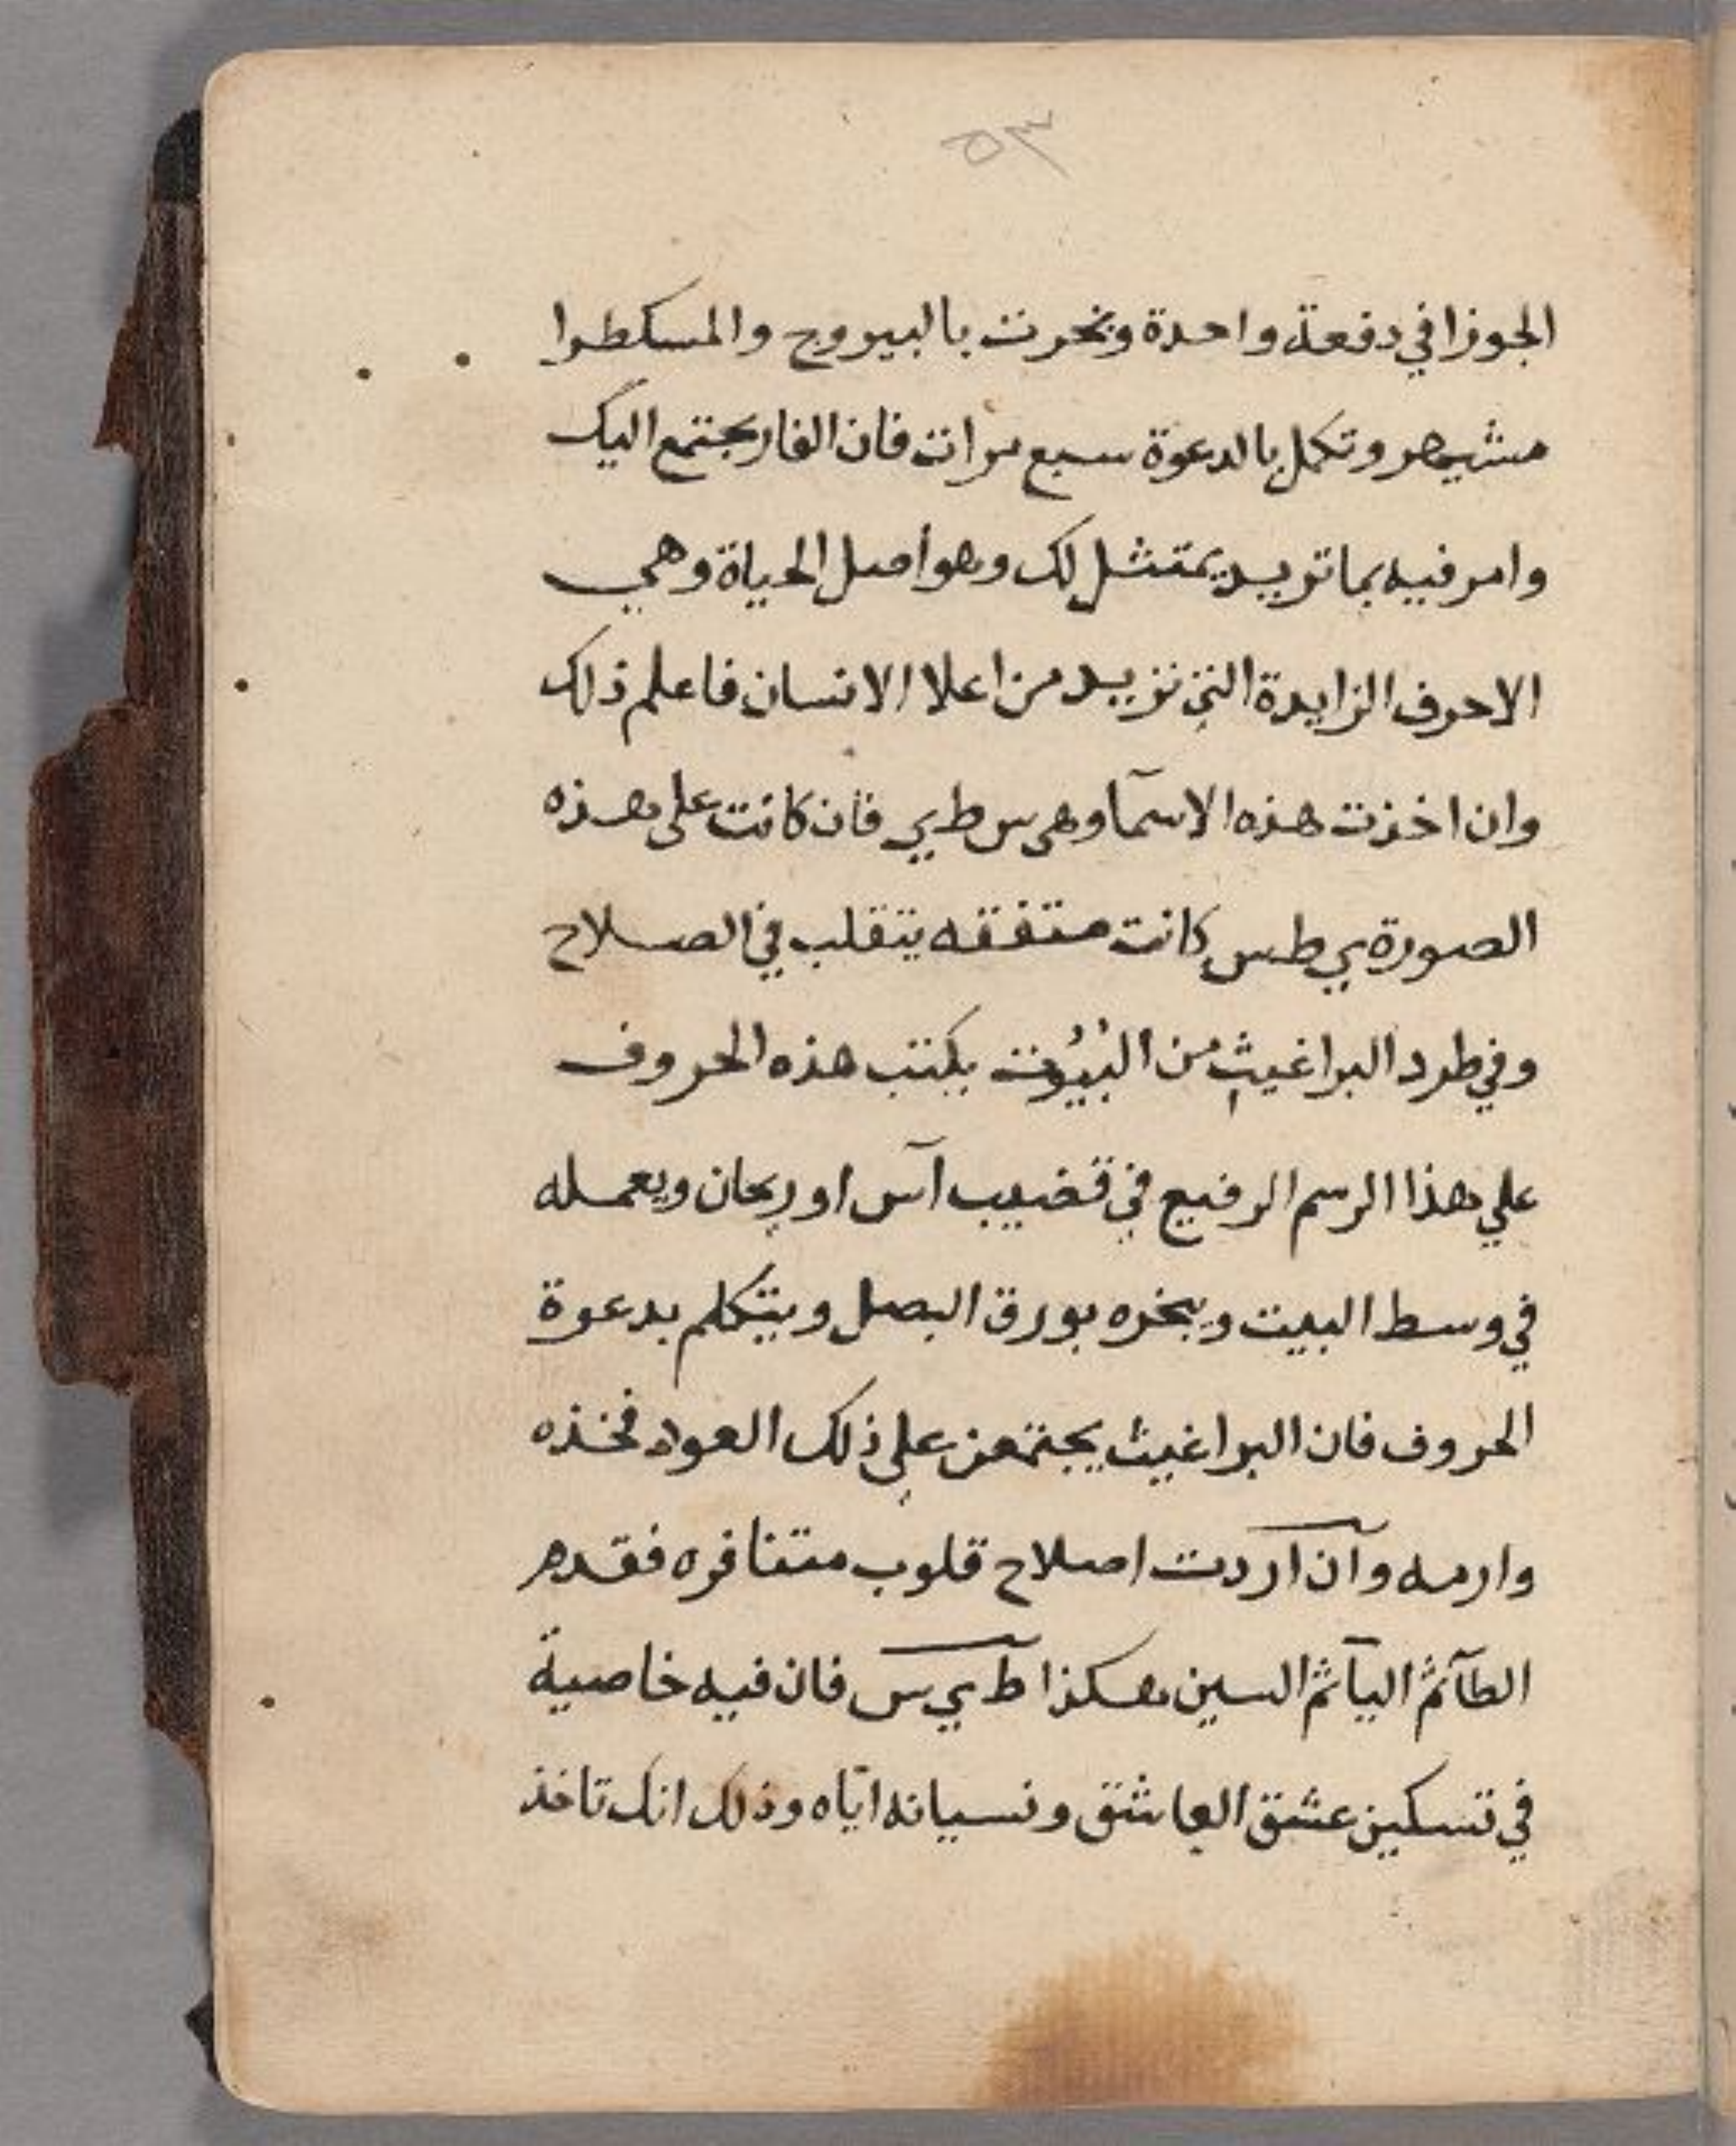 ٥٣
الجوزا في دفعة واحدة وبخرت بالبيروح والمسكطرا
مشيهر وتكمل بالدعوة سبع مرات فان الفار يجتمع اليك
وامر فيه بما تريد يمتثل لك وهو أصل الحياة وهي
الاحرف الزايدة التي تزيد من اعلا الانسان فاعلم ذلك
وان اخذت هذه الاسمآ وهي س ط ي فان كانت على هذه
الصورة ي ط س كانت متفقه يتقلب في الصلاح
وفي طرد البراغيث من البُيُوت يكتب هذه الحروف
علي هذا الرسم الرفيع في قضيب آس او ريحان ويعمله
في وسط البيت ويبخره بورق البصل ويتكلم بدعوة
الحروف فان البراغيث يجتمعن علي ذلك العود فخذه
وارمه وآن آردت اصلاح قلوب متنافره فقدم
الطآ ثم اليآ ثم السين هكذا ط ي س فان فيه خاصية
في تسكين عشق العاشق ونسيانه اياه وذلك انك تاخذ